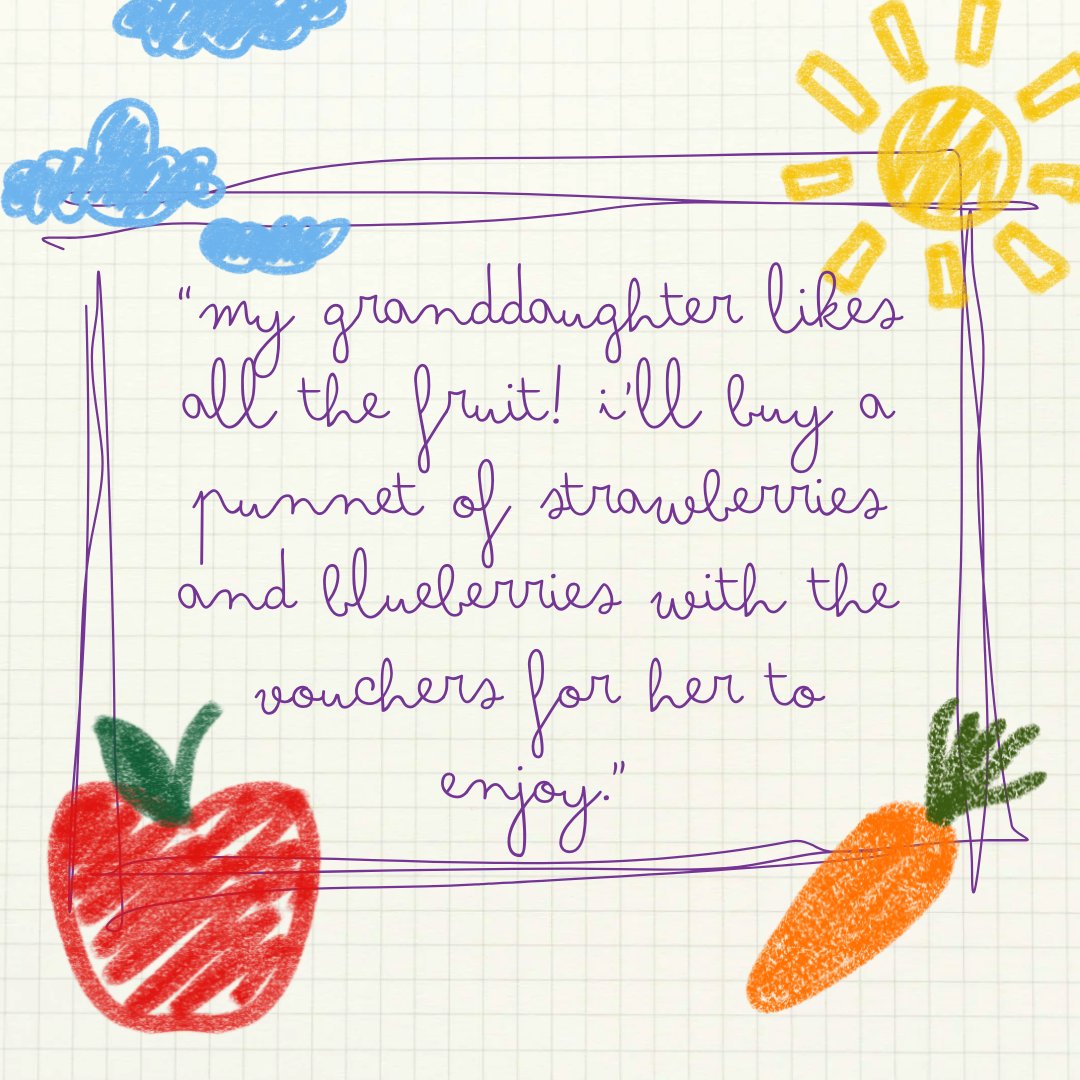 "my granddaughter likes
all the fruit! i'll buy a
punnet of strawberries
and blueberries with the
vouchers for her to
enjoy."